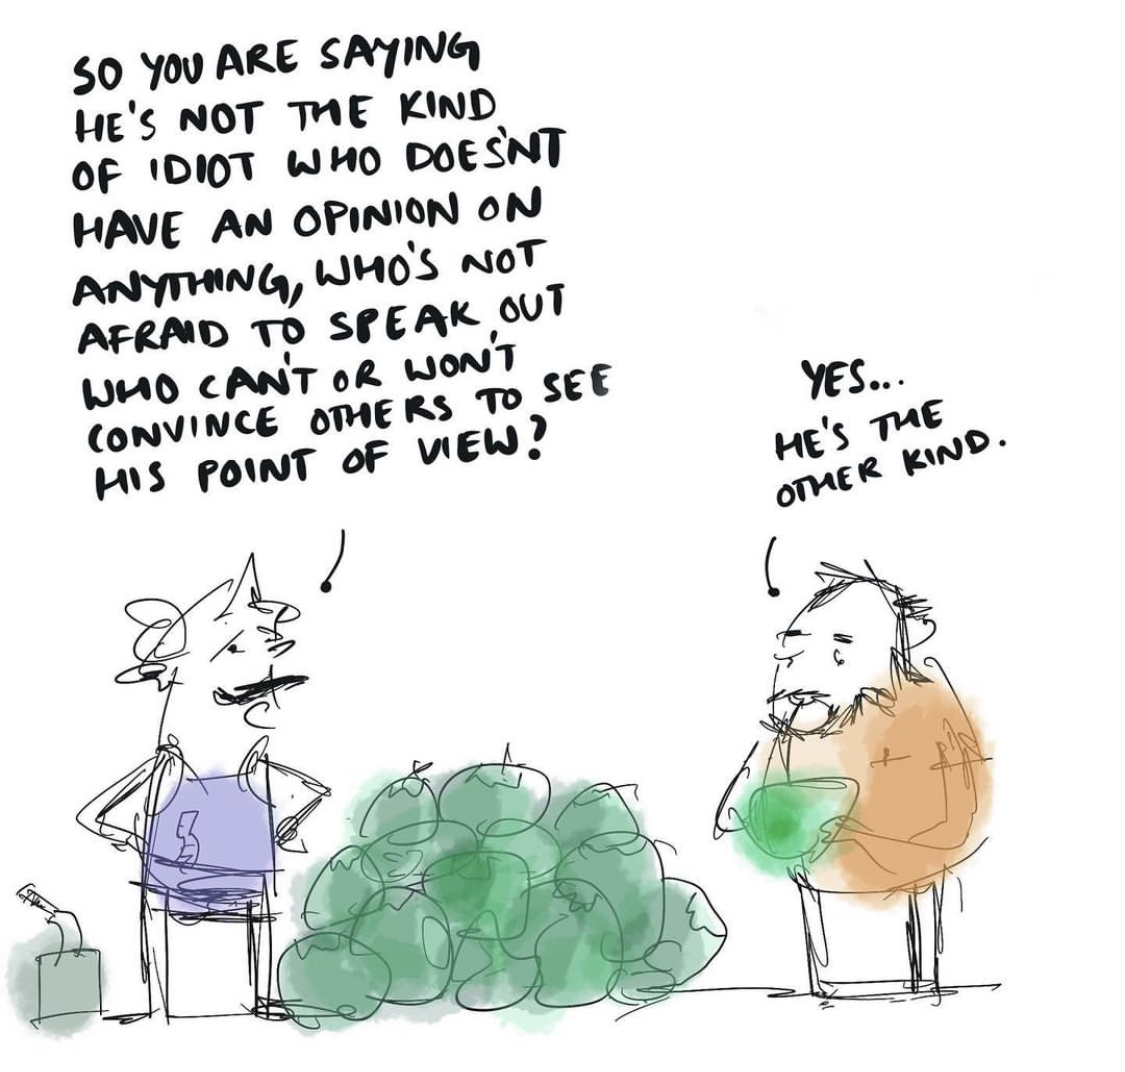 SO YOU ARE SAYING
HE'S NOT THE KIND
OF IDIOT WHO DOES'NT
HAVE AN OPINION ON
ANYTHING, WHO'S NOT
AFRAID TO SPEAK OUT
WHO CAN'T OR WON'T
CONVINCE OTHERS TO SEE
HIS POINT OF VIEW?
YES...
HE'S THE
OTHER KIND.